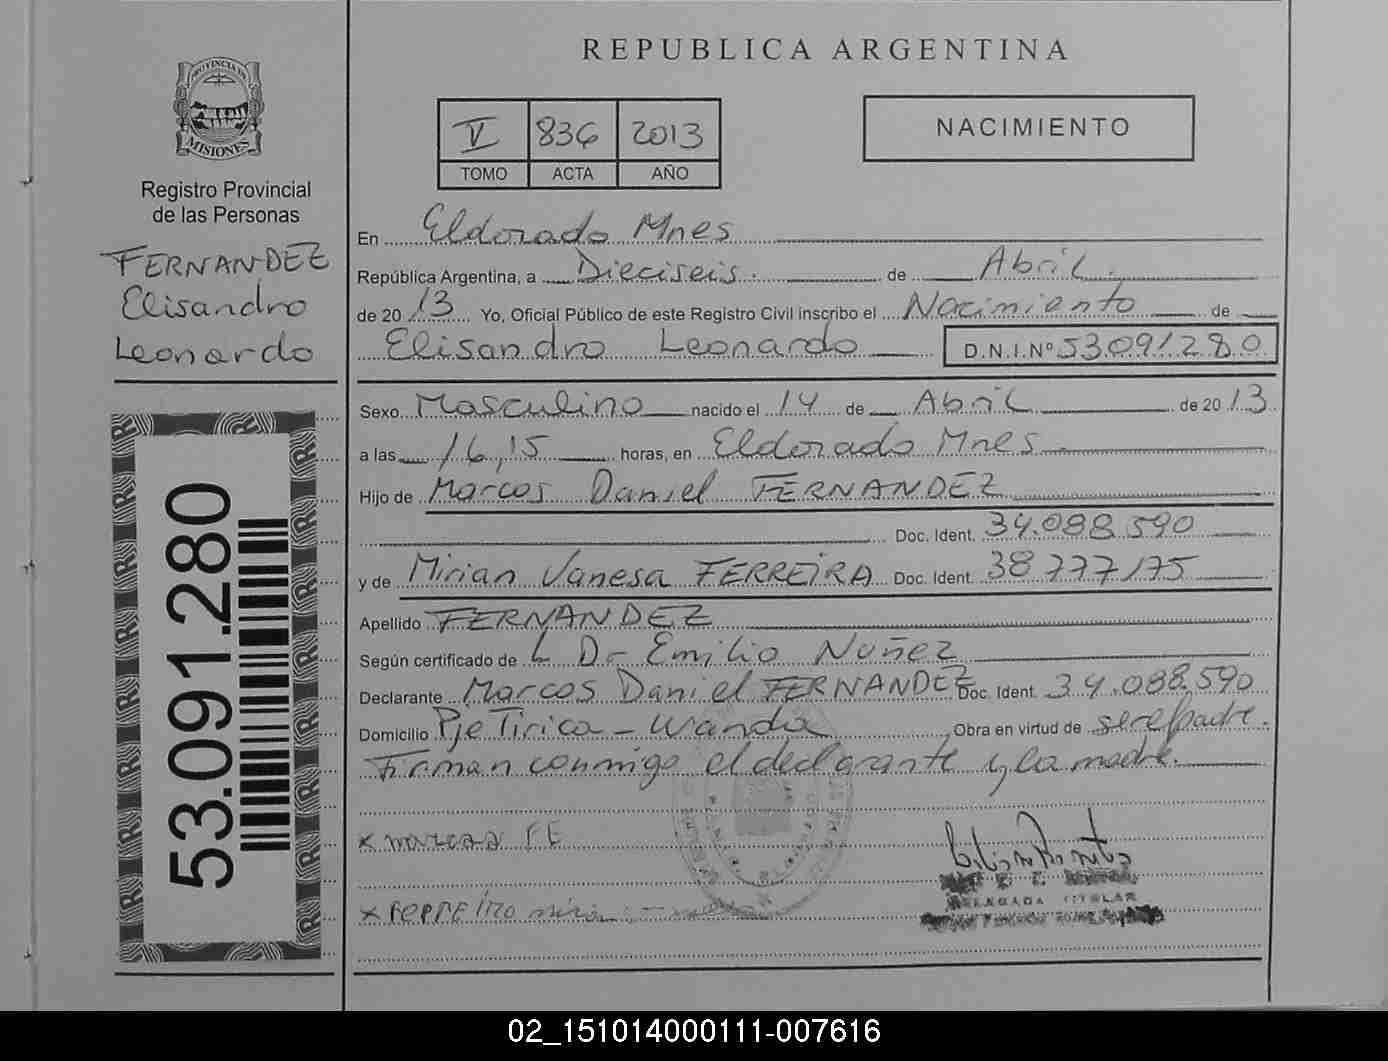 REPUBLICA ARGENTINA
PROVINCIA DE
MISIONES
Registro Provincial
de las Personas
FERNANDEZ
Elisandro
Leonardo
53.091.280
V 836 2013
TOMO ACTA AÑO
NACIMIENTO
En Eldorado Mnes
República Argentina, a Dieciseis. de Abril.
de 2013 Yo, Oficial Público de este Registro Civil inscribo el Nacimiento de
Elisandro Leonardo D.N.I.Nº 53.091280
Sexo Masculino nacido el 14 de Abril de 2013
a las 16,15 horas, en Eldorado Mnes
Hijo de Marcos Daniel FERNANDEZ
Doc. Ident. 34.088.590
y de Mirian Vanesa FERREIRA Doc. Ident. 38777175
Apellido FERNANDEZ
Según certificado de L Dr Emilio Nuñez
Declarante Marcos Daniel FERNANDEZ Doc. Ident. 34.088.590
Domicilio Pje Tirica - Wanda Obra en virtud de ser el padre.
Firman conmigo el declarante y la madre.
x marcos FE
x
TITULAR
02_151014000111-007616